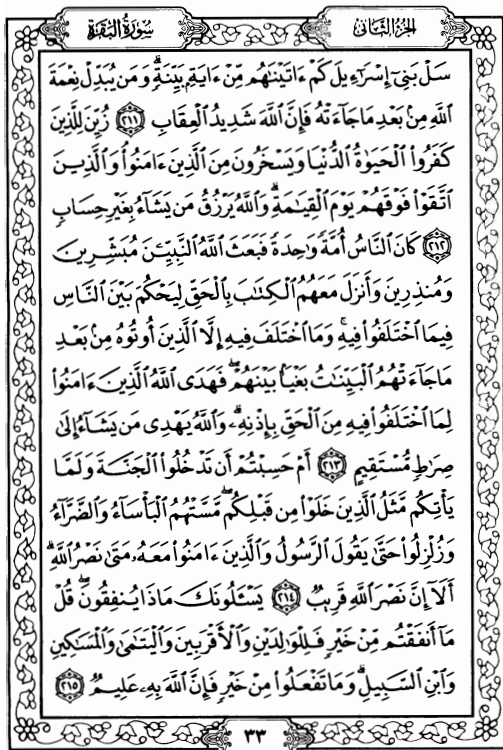 الجزء الثاني
سورة البقرة
سَلۡ بَنِيٓ إِسۡرَٰٓءِيلَ كَمۡ ءَاتَيۡنَٰهُم مِّنۡ ءَايَةِۭ بَيِّنَةٖۗ وَمَن يُبَدِّلۡ نِعۡمَةَ
ٱللَّهِ مِنۢ بَعۡدِ مَا جَآءَتۡهُ فَإِنَّ ٱللَّهَ شَدِيدُ ٱلۡعِقَابِ ٢١١ زُيِّنَ لِلَّذِينَ
كَفَرُواْ ٱلۡحَيَوٰةُ ٱلدُّنۡيَا وَيَسۡخَرُونَ مِنَ ٱلَّذِينَ ءَامَنُواْۘ وَٱلَّذِينَ
ٱتَّقَوۡاْ فَوۡقَهُمۡ يَوۡمَ ٱلۡقِيَٰمَةِۗ وَٱللَّهُ يَرۡزُقُ مَن يَشَآءُ بِغَيۡرِ حِسَابٖ
٢١٢ كَانَ ٱلنَّاسُ أُمَّةٗ وَٰحِدَةٗ فَبَعَثَ ٱللَّهُ ٱلنَّبِيِّـۧنَ مُبَشِّرِينَ
وَمُنذِرِينَ وَأَنزَلَ مَعَهُمُ ٱلۡكِتَٰبَ بِٱلۡحَقِّ لِيَحۡكُمَ بَيۡنَ ٱلنَّاسِ
فِيمَا ٱخۡتَلَفُواْ فِيهِۚ وَمَا ٱخۡتَلَفَ فِيهِ إِلَّا ٱلَّذِينَ أُوتُوهُ مِنۢ بَعۡدِ
مَا جَآءَتۡهُمُ ٱلۡبَيِّنَٰتُ بَغۡيَۢا بَيۡنَهُمۡۖ فَهَدَى ٱللَّهُ ٱلَّذِينَ ءَامَنُواْ
لِمَا ٱخۡتَلَفُواْ فِيهِ مِنَ ٱلۡحَقِّ بِإِذۡنِهِۦۗ وَٱللَّهُ يَهۡدِي مَن يَشَآءُ إِلَىٰ
صِرَٰطٖ مُّسۡتَقِيمٍ ٢١٣ أَمۡ حَسِبۡتُمۡ أَن تَدۡخُلُواْ ٱلۡجَنَّةَ وَلَمَّا
يَأۡتِكُم مَّثَلُ ٱلَّذِينَ خَلَوۡاْ مِن قَبۡلِكُمۖ مَّسَّتۡهُمُ ٱلۡبَأۡسَآءُ وَٱلضَّرَّآءُ
وَزُلۡزِلُواْ حَتَّىٰ يَقُولَ ٱلرَّسُولُ وَٱلَّذِينَ ءَامَنُواْ مَعَهُۥ مَتَىٰ نَصۡرُ ٱللَّهِۗ
أَلَآ إِنَّ نَصۡرَ ٱللَّهِ قَرِيبٞ ٢١٤ يَسۡـَٔلُونَكَ مَاذَا يُنفِقُونَۖ قُلۡ
مَآ أَنفَقۡتُم مِّنۡ خَيۡرٖ فَلِلۡوَٰلِدَيۡنِ وَٱلۡأَقۡرَبِينَ وَٱلۡيَتَٰمَىٰ وَٱلۡمَسَٰكِينِ
وَٱبۡنِ ٱلسَّبِيلِۗ وَمَا تَفۡعَلُواْ مِنۡ خَيۡرٖ فَإِنَّ ٱللَّهَ بِهِۦ عَلِيمٞ ٢١٥
٣٣